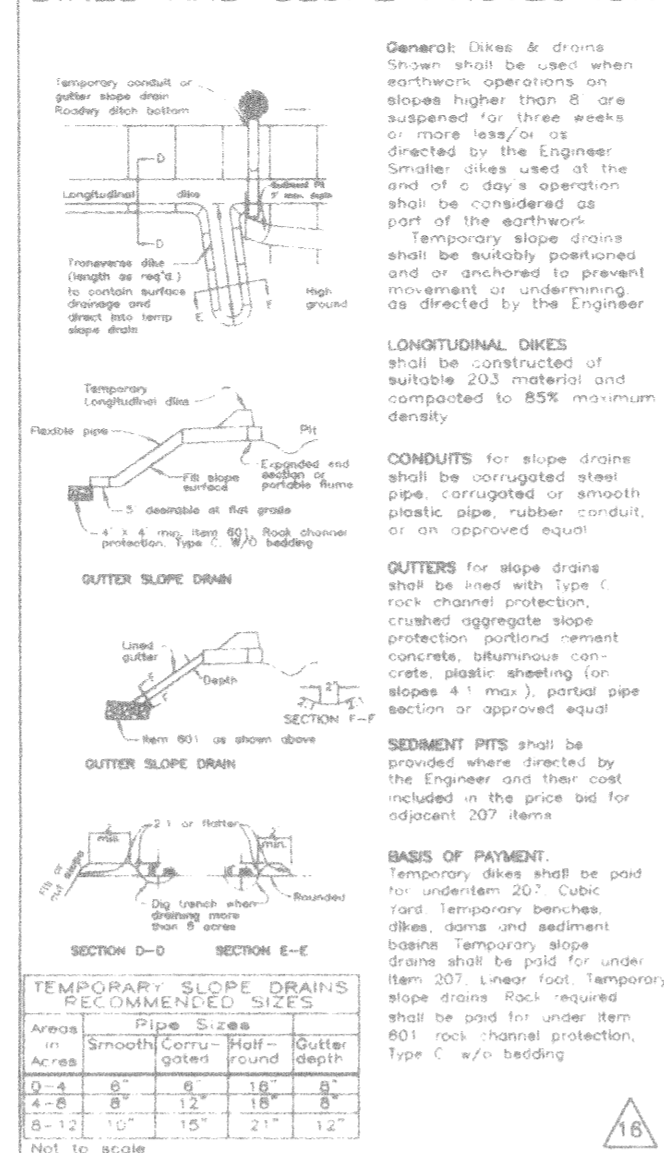 Temporary conduit or
gutter slope drain
Roadwy ditch bottom
D
Longitudinal dike
Sediment Pit
max. depth
D
Transverse dike
(length as req'd)
to contain surface
drainage and
direct into temp
slope drain
E
F
High
ground
Temporary
Longitudinal dike
Flexible pipe
Pit
Fill slope
surface
Expanded end
section or
portable flume
5' desirable at flat grade
4' x 4' min. Item 601, Rock channel
protection, Type C, W/O bedding
GUTTER SLOPE DRAIN
Lined
gutter
Depth
F
F
2'
SECTION F-F
Item 601 as shown above
GUTTER SLOPE DRAIN
2' min.
2:1 or flatter
2' min.
Fill or
cut slope
Dig trench when
draining more
than 8 acres
Rounded
SECTION D-D SECTION E-E
TEMPORARY SLOPE DRAINS
RECOMMENDED SIZES
Areas in Acres
Pipe Sizes
Smooth Corru-gated Half-round Gutter depth
0-4 6" 6" 18" 8"
4-8 8" 12" 18" 8"
8-12 10" 15" 21" 12"
Not to scale
General: Dikes & drains
Shown shall be used when
earthwork operations on
slopes higher than 8' are
suspened for three weeks
or more less/or as
directed by the Engineer
Smaller dikes used at the
and of a day's operation
shall be considered as
part of the earthwork
Temporary slope drains
shall be suitably positioned
and or anchored to prevent
movement or undermining,
as directed by the Engineer
LONGITUDINAL DIKES
shall be constructed of
suitable 203 material and
compacted to 85% maximum
density
CONDUITS for slope drains
shall be corrugated steel
pipe, corrugated or smooth
plastic pipe, rubber conduit,
or an approved equal
GUTTERS for slope drains
shall be lined with Type C
rock channel protection,
crushed aggregate slope
protection portland cement
concrete, bituminous con-
crete, plastic sheeting (on
slopes 4:1 max.), partial pipe
section or approved equal
SEDIMENT PITS shall be
provided where directed by
the Engineer and their cost
included in the price bid for
adjacent 207 items
BASIS OF PAYMENT.
Temporary dikes shall be paid
for underitem 207. Cubic
Yard. Temporary benches,
dikes, dams and sediment
basins Temporary slope
drains shall be paid for under
Item 207. Linear foot, Temporary
slope drains Rock required
shall be paid for under Item
601 rock channel protection,
Type C w/o bedding
16